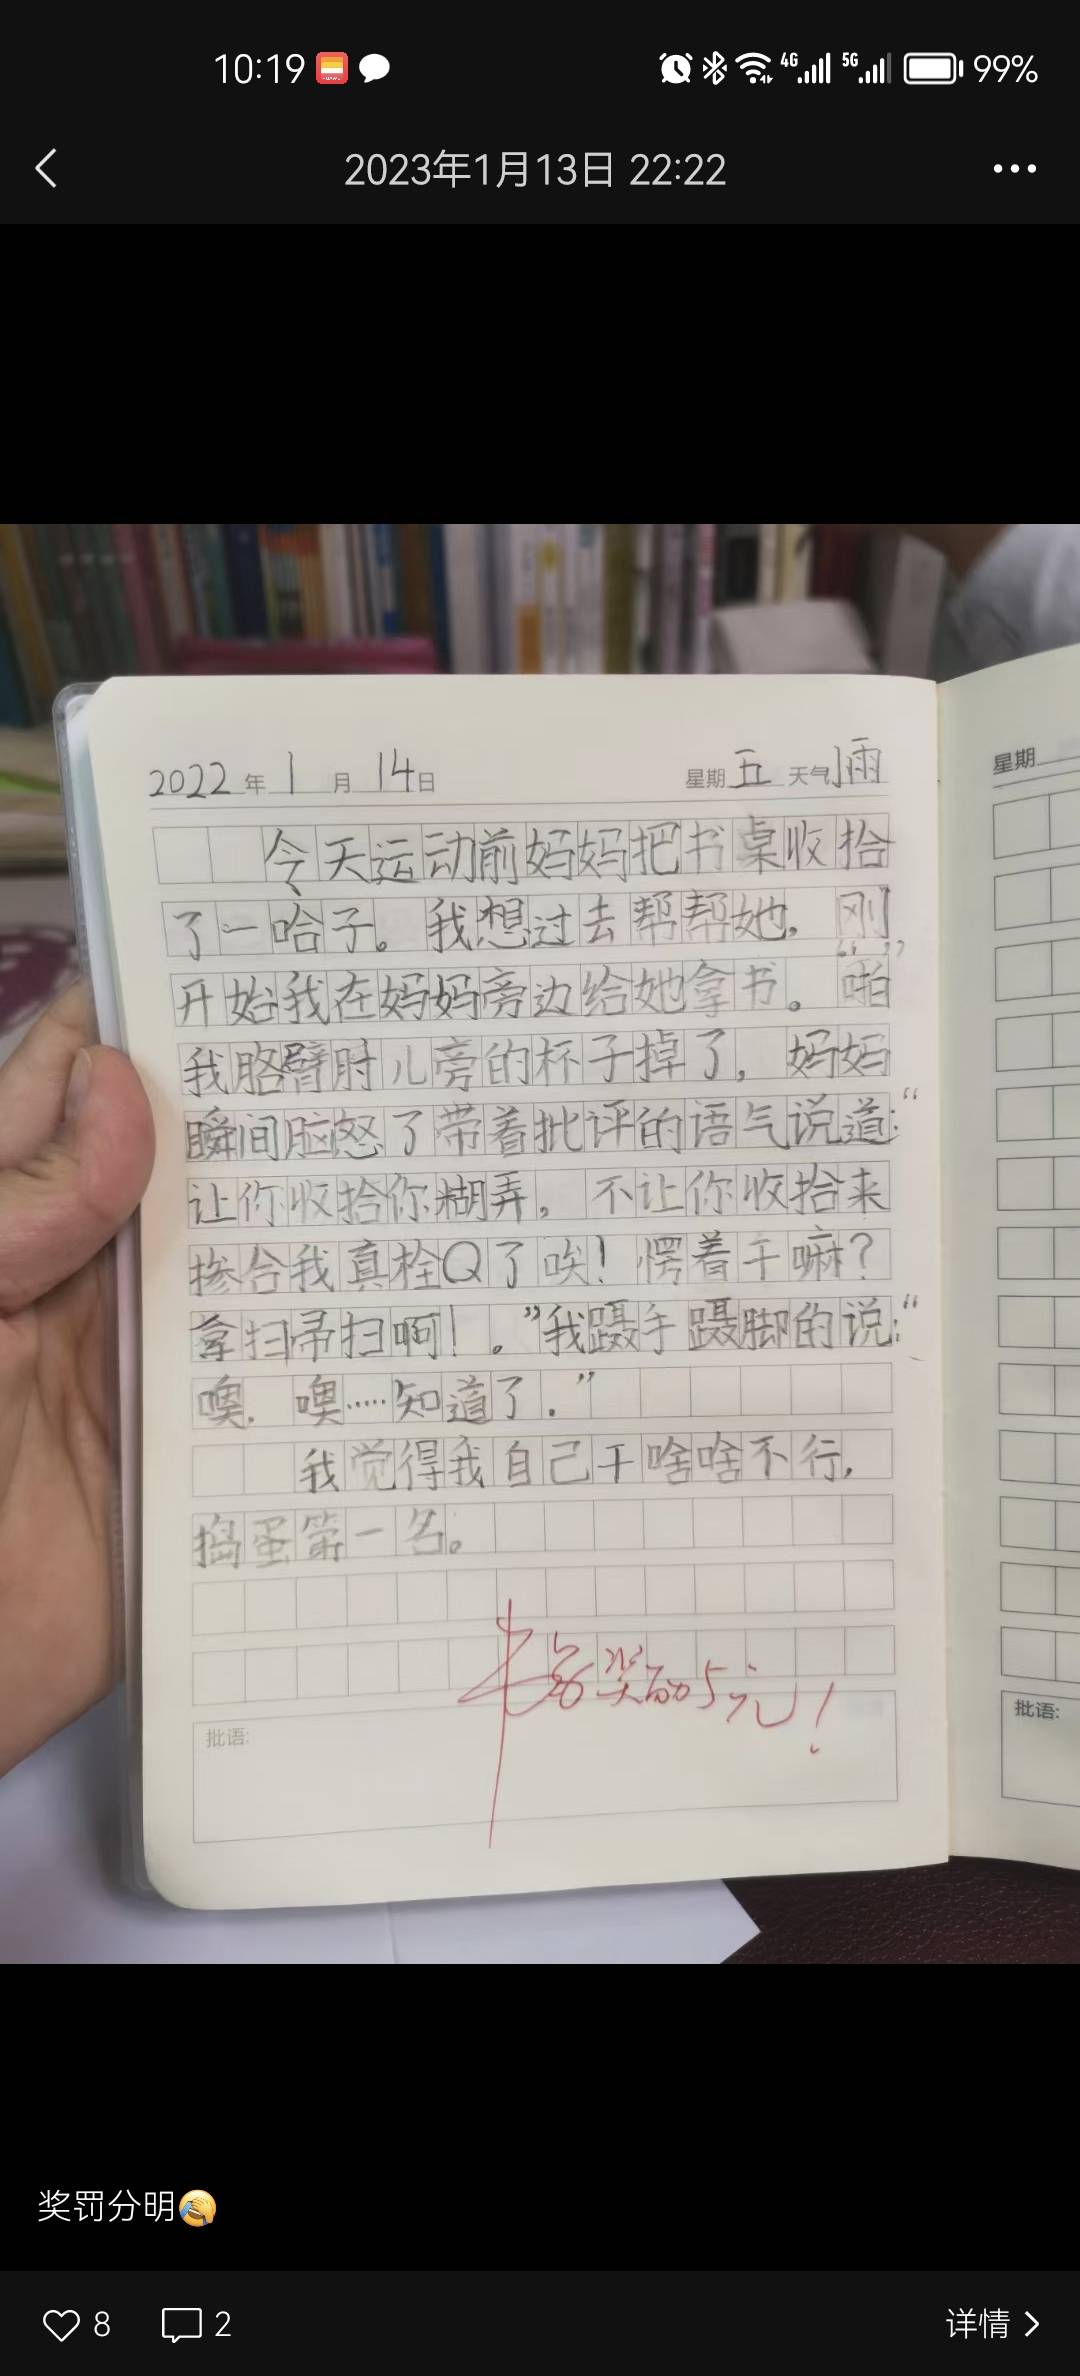 10:19
4G 5G 99%
2023年1月13日 22:22
2022年1月14日 星期五 天气小雨
星期
今天运动前妈妈把书桌收拾
了一哈子。我想过去帮帮她，刚
开始我在妈妈旁边给她拿书。“啪”
我胳臂肘儿旁的杯子掉了，妈妈
瞬间脑怒了带着批评的语气说道：“
让你收拾你糊弄，不让你收拾来
掺合我真栓Q了唉！愣着干嘛？
拿扫帚扫啊！。”我蹑手蹑脚的说：“
噢，噢……知道了.”
我觉得我自己干啥啥不行，
捣蛋第一名。
奖励5元！
批语:
批语:
奖罚分明
8 2 详情